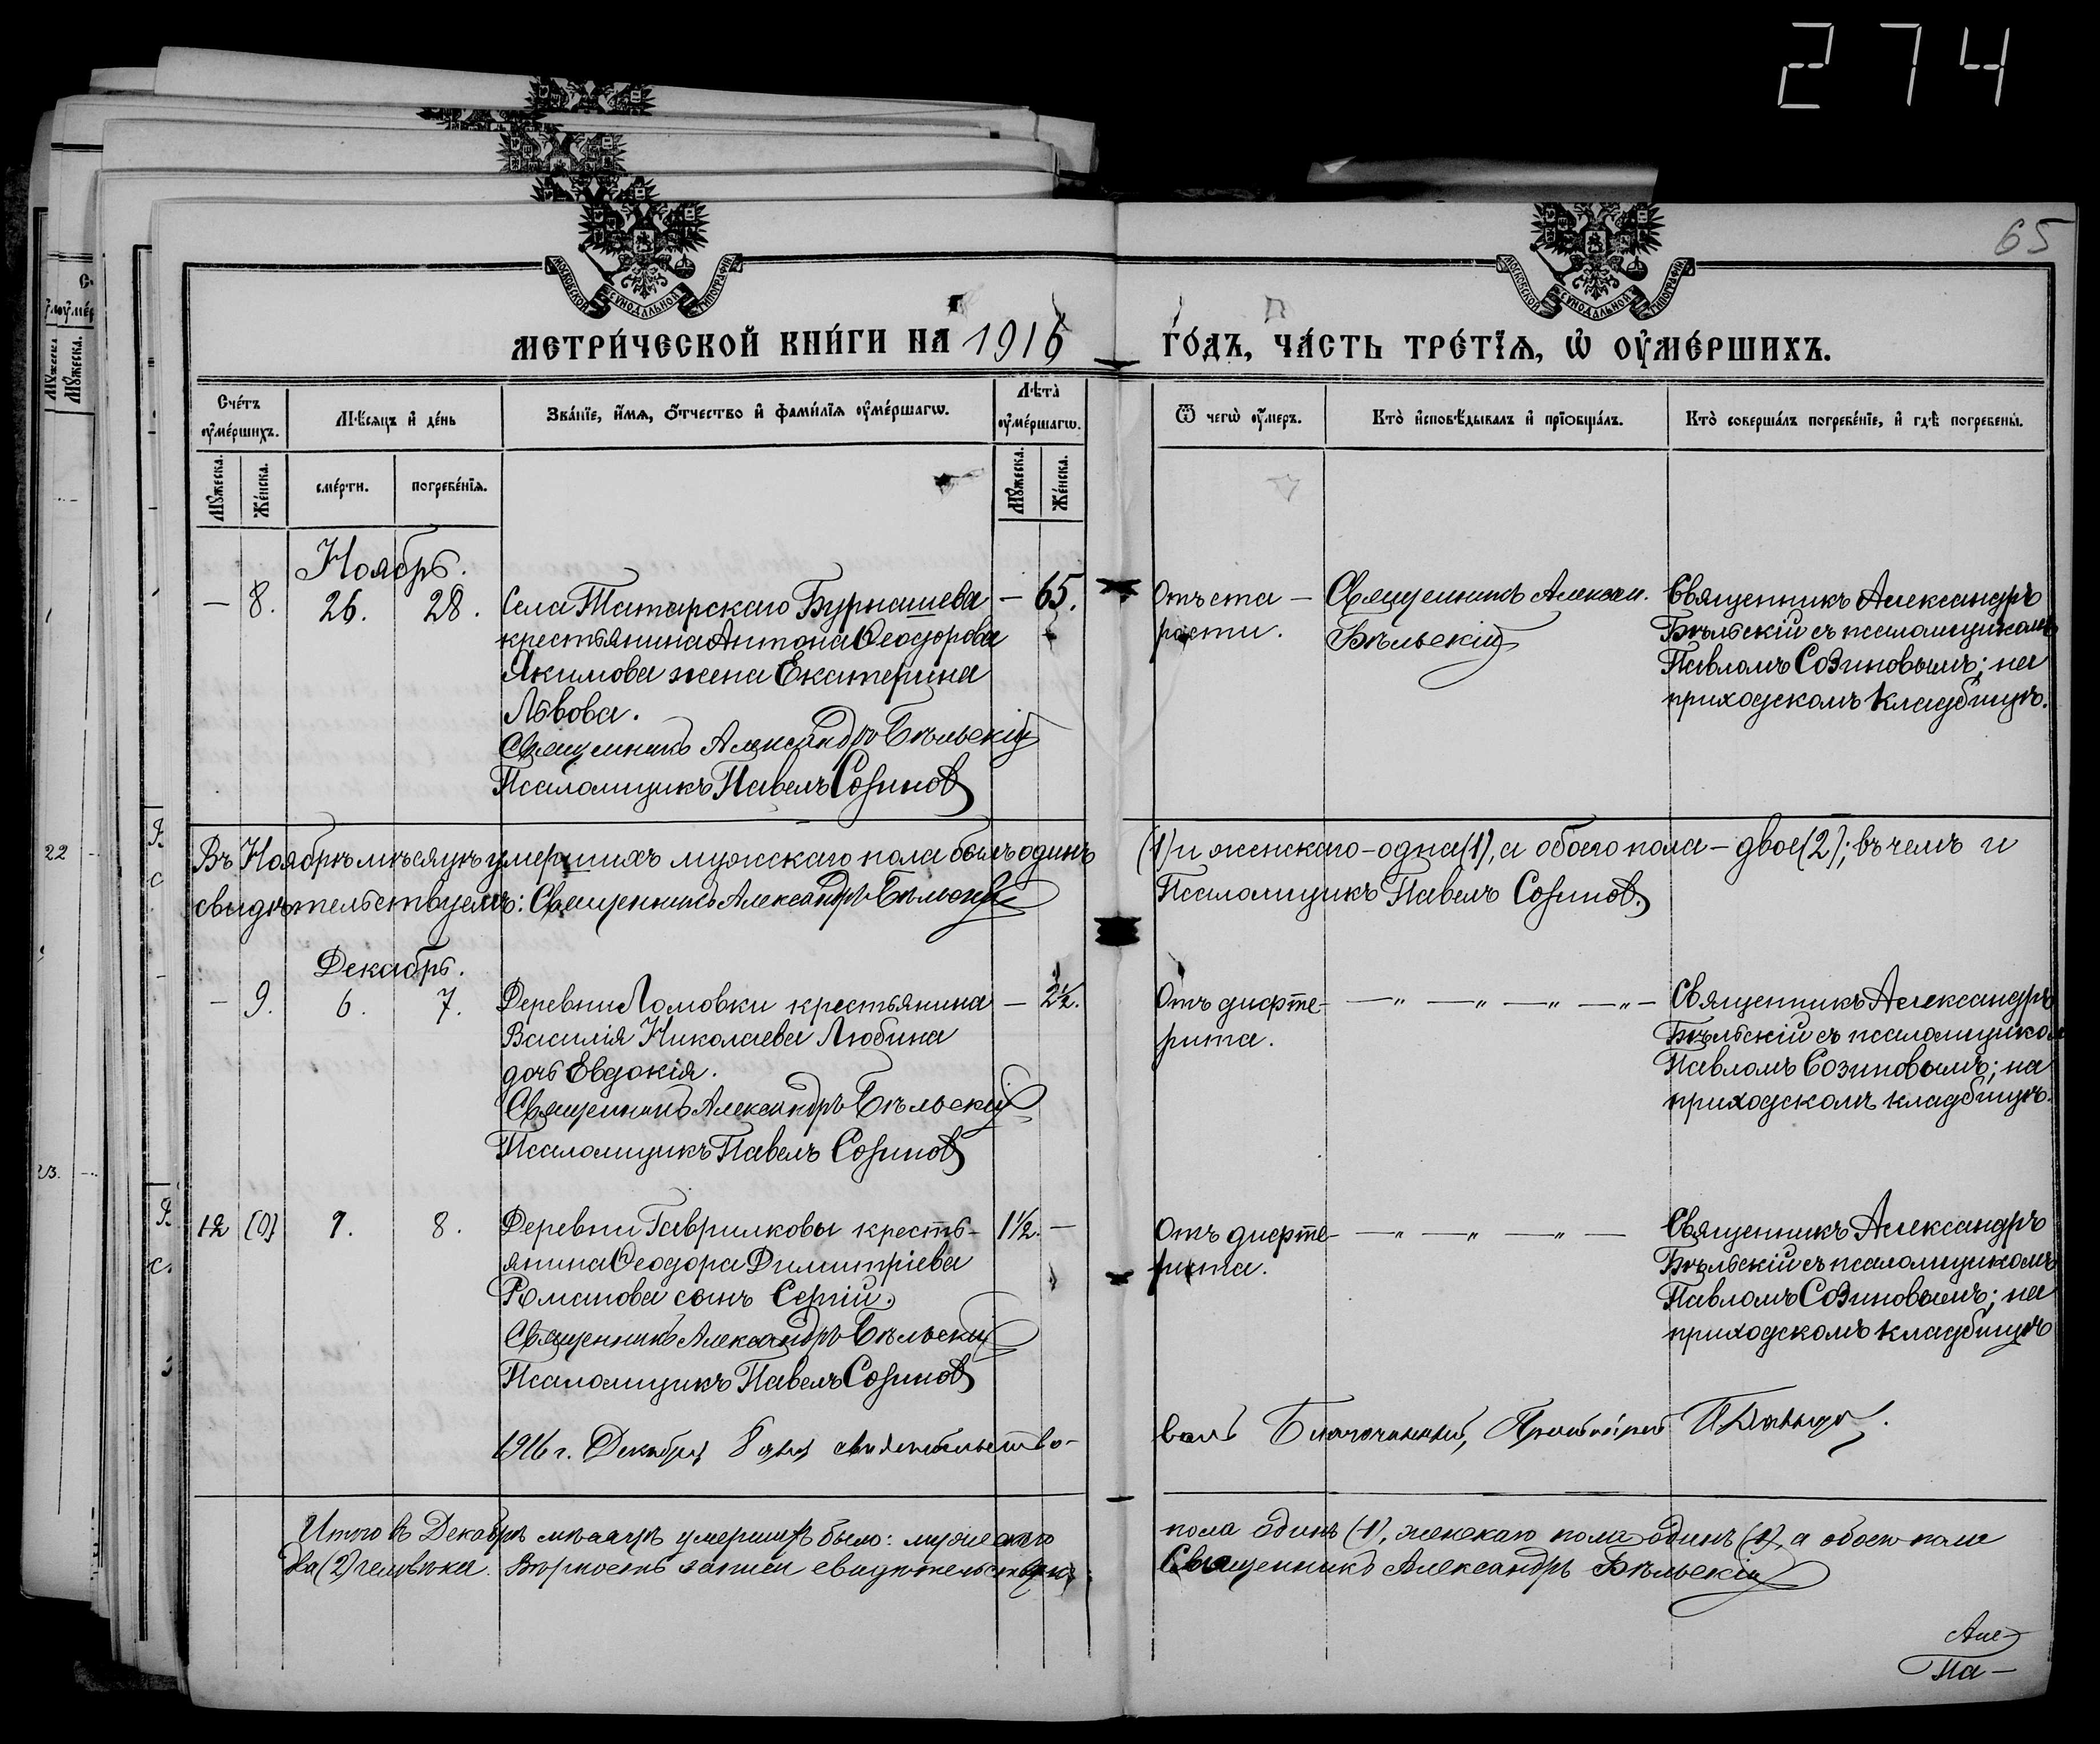 274
65
МОСКОВСКОЙ СУНОДАЛЬНОЙ ТИПОГРАФІИ
МОСКОВСКОЙ СУНОДАЛЬНОЙ ТИПОГРАФІИ
МЕТРИ́ЧЕСКОЙ КНИ́ГИ НА 1916 ГО́ДЪ, ЧА́СТЬ ТРЕ́ТЇѦ, Ѡ ОУ҆МЕ́РШИХЪ.
Сче́тъ оу҆ме́ршихъ.
Мꙋ́жеска.
Же́нска.
Мѣ́сяцъ и҆ де́нь
сме́рти.
погребе́нїя.
Зва́нїе, и҆́мѧ, ѻ҆́тчество и҆ фами́лїѧ оу҆ме́ршагѡ.
Лѣта̀ оу҆ме́ршагѡ.
Мꙋ́жеска.
Же́нска.
Ѿ чегѡ̀ оу҆́меръ.
Кто̀ и҆сповѣ́дывалъ и҆ прїѡбща́лъ.
Кто̀ соверша́лъ погребе́нїе, и҆ гдѣ̀ погребены̀.
Ноябрь.
— 8. 26. 28. Села Татарскаго Бурнашева — 65.
крестьянина Антона Ѳеодорова
Якимова жена Екатерина
Львова.
Священникъ Александръ Бѣльскій
Псаломщикъ Павелъ Созинов
Отъ ста —
рости.
Священникъ Алексан.
Бѣльскій
Священникъ Александръ
Бѣльскій съ псаломщикомъ
Павломъ Созиновымъ; на
приходскомъ кладбищѣ.
Въ Ноябрѣ мѣсяцѣ умершихъ мужскаго пола былъ одинъ (1) и женскаго – одна (1), а обоего пола – двое (2); въ чемъ и
свидѣтельствуемъ: Священникъ Александръ Бѣльскій Псаломщикъ Павелъ Созинов.
Декабрь.
— 9. 6. 7. Деревни Ломовки крестьянина — 2½.
Василія Николаева Любина
дочь Евдокія.
Священникъ Александръ Бѣльскій
Псаломщикъ Павелъ Созинов
Отъ дифте-
рита.
—„ —„ —„ —„—
Священникъ Александръ
Бѣльскій съ псаломщиком
Павломъ Созиновымъ; на
приходскомъ кладбищѣ.
12 7. 8. Деревни Гаврилковы кресть- 1½. —
янина Ѳеодора Димитріева
Романова сынъ Сергій.
Священникъ Александръ Бѣльскій
Псаломщикъ Павелъ Созинов
Отъ дифте-
рита.
—„ —„ —„ —
Священникъ Александръ
Бѣльскій съ псаломщикомъ
Павломъ Созиновымъ; на
приходскомъ кладбищѣ
1916 г. Декабря 8 дня свидетельство-
валъ Благочинный, Протоіерей
Итого въ Декабрѣ мѣсяцѣ умершихъ было: мужскаго пола одинъ (1), женскаго пола одинъ (1), а обоего пола
два (2) человѣка. Вѣрность записи свидѣтельствую: Священникъ Александръ Бѣльскій
Але-
Па-
22